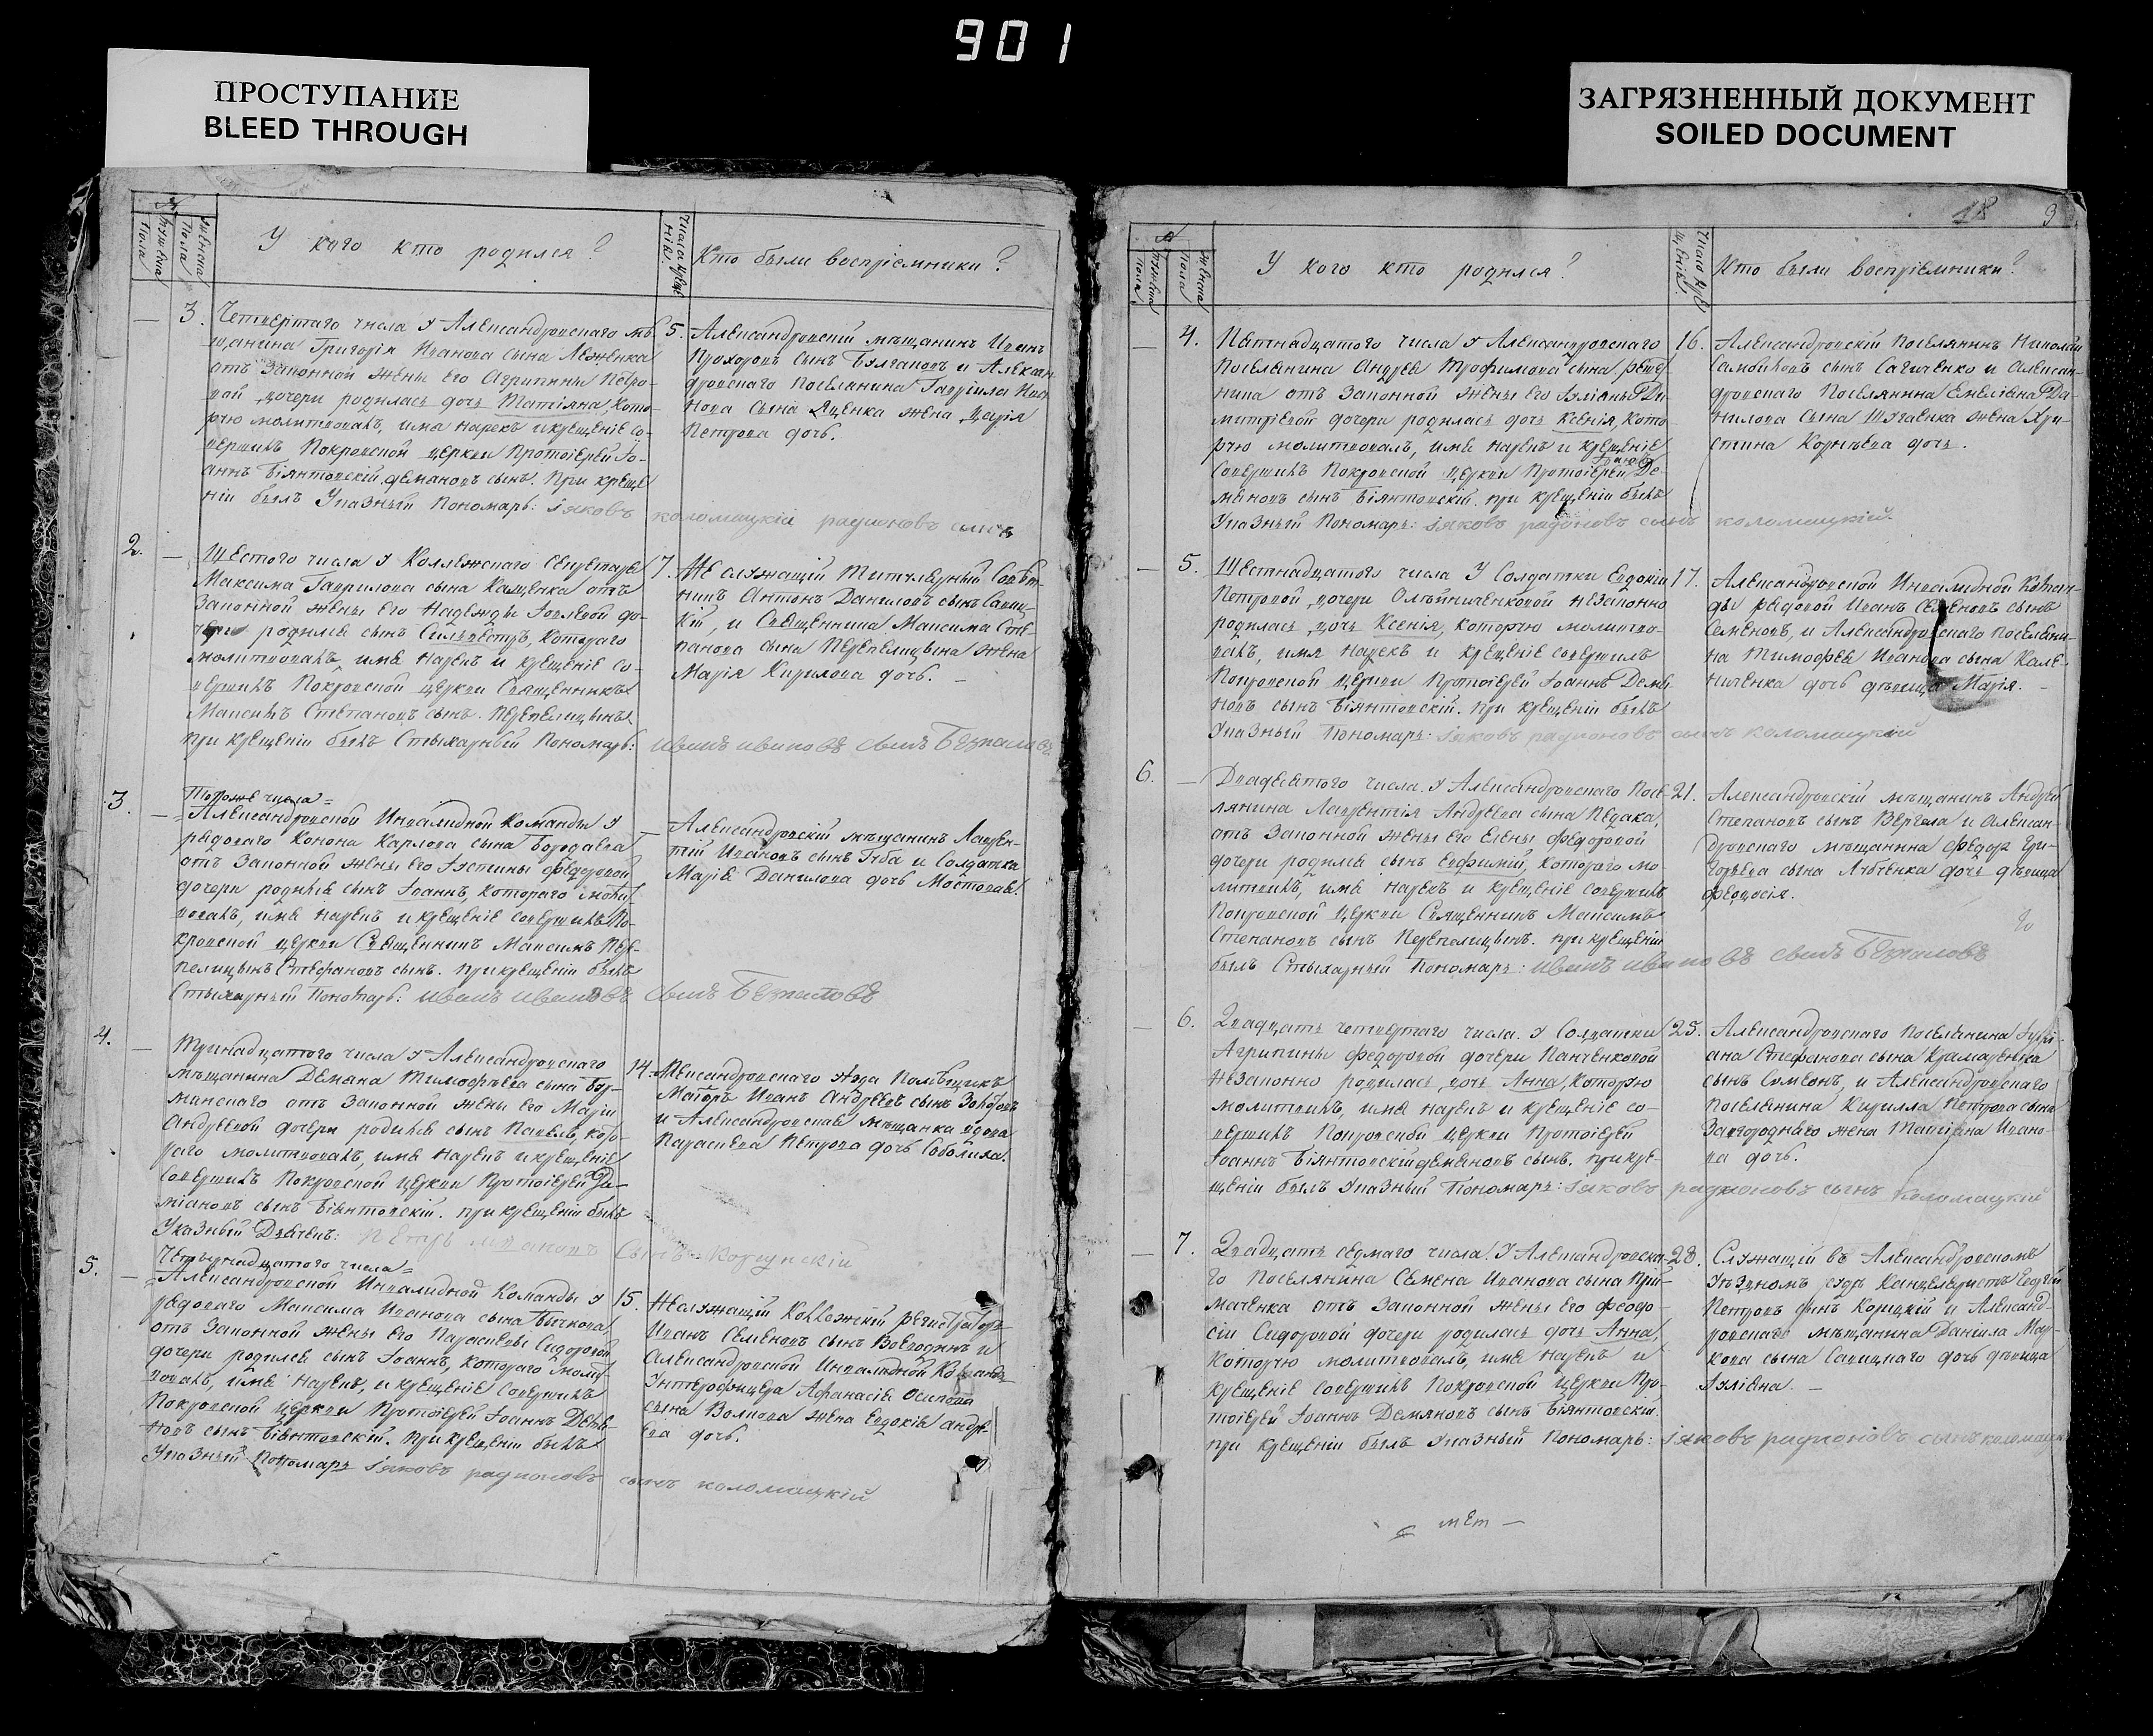 901
ПРОСТУПАНИЕ
BLEED THROUGH
ЗАГРЯЗНЕННЫЙ ДОКУМЕНТ
SOILED DOCUMENT
У кого кто родился?
Кто были воспріемники?
3. Четвертаго числа у Александровскаго мѣ-
щанина Григорія Иванова сына Леженка
отъ законной жены его Агрипины Петро-
вой дочери родилась дочь Татіяна, кото-
рую молитвовалъ, имя нарекъ и крещеніе со-
вершилъ Покровской церкви Протоіерей Іо-
аннъ Біянтовскій Демяновъ сынъ. При креще-
ніи былъ Указный Пономарь: Іяковъ коломацкій радионовъ сынъ
5. Александровскій мѣщанинъ Иванъ
Прохоровъ сынъ Булгаковъ и Алексан-
дровскаго Поселянина Гавріила
сына Яценка жена Дарія
Петрова дочь.
2. Шестого числа у Коллежскаго Секретаря
Максима Гаврилова сына Кащенка отъ
Законной жены его Надежды Іовлевой до-
чери родился сынъ Сильвестръ, котораго
молитвовалъ, имя нарекъ и крещеніе со-
вершилъ Покровской церкви Священникъ
Максимъ Степановъ сынъ Перепелицынъ
при крещеніи былъ Стихарный Пономарь: Иванъ Ивановъ сынъ
7. Не служащій Титулярный Совѣт-
никъ Антонъ Даниловъ сынъ Савиц-
кій, и Священника Максима Сте-
панова сына Перепелицына жена
Марія Кирилова дочь.
3. Тогоже числа
Александровской Инвалидной Команды у
рядоваго Конона Карпова сына Бородаева
отъ Законной жены его Іустины Федоровой
дочери родился сынъ Іоаннъ, котораго молит-
вовалъ, имя нарекъ и крещеніе совершилъ По-
кровской церкви Священникъ Максимъ Пере-
пелицынъ Стефановъ сынъ. При крещеніи былъ
Стихарный Пономарь: Иванъ Ивановъ сынъ
Александровскій мѣщанинъ Лаврен-
тій Ивановъ сынъ Губа и Солдатка
Марія Данилова дочь Мостовая.
4. Тринадцатого числа у Александровскаго
мѣщанина Демяна Тимофѣева сына
отъ Законной жены его Маріи
Андреевой дочери родился сынъ Павелъ, кото-
раго молитвовалъ, имя нарекъ и крещеніе
совершилъ Покровской церкви Протоіерей Да-
міановъ сынъ Біянтовскій. при крещеніи былъ
Указный Дьячекъ: Петръ сынъ Корсунскій
14. Александровскаго уѣзда Помѣщикъ
Маіоръ Иванъ Андреевъ сынъ
и Александровская мѣщанка вдова
Параскева Петрова дочь Соболиха.
5. Четырнадцатого числа
Александровской Инвалидной Команды у
рядоваго Максима Иванова сына Бычкова,
отъ Законной жены его Параскевы Сидоровой
дочери родился сынъ Іоаннъ, котораго молит-
вовалъ, имя нарекъ, и крещеніе совершилъ
Покровской церкви Протоіерей Іоаннъ Демя-
новъ сынъ Біянтовскій. При крещеніи былъ
Указный Пономарь Іяковъ радионовъ сынъ коломацкій
15. Неслужащій Коллежскій Регистраторъ
Иванъ Семеновъ сынъ Воеводинъ и
Александровской Инвалидной Команды
Унтерофицера Афанасія Осипова
сына Волкова жена Евдокія Андре-
ева дочь.
18 9
У кого кто родился?
Кто были воспріемники?
4. Пятнадцатого числа у Александровскаго
Поселянина Андрея Трофимова сына
отъ Законной жены его Іуліаны Ди-
митріевой дочери родилась дочь Ксенія, кото-
рую молитвовалъ, имя нарекъ и крещеніе
совершилъ Покровской церкви Протоіерей Іоаннъ Де-
мяновъ сынъ Біянтовскій. при крещеніи былъ
Указный Пономарь: Іяковъ радионовъ сынъ коломацкій.
16. Александровскій Поселянинъ Николай
сынъ Сагиченко и Алексан-
дровскаго Поселянина Емеліана Да-
нилова сына Шугаенка жена Хри-
стина Корнѣева дочь.
5. Шестнадцатого числа У Солдатки Евдокіи
Петровой дочери Олѣйниченковой незаконно
родилась дочь Ксенія, которую молитво-
валъ, имя нарекъ и крещеніе совершилъ
Покровской церкви Протоіерей Іоаннъ Демя-
новъ сынъ Біянтовскій. При крещеніи былъ
Указный Пономарь: Іяковъ радионовъ сынъ коломацкій
17. Александровской Инвалидной Коман-
ды рядовой Иванъ Семеновъ сынъ
Семеновъ, и Александровскаго Поселяни-
на Тимофея Иванова сына Кале-
ниченка дочь дѣвица Марія.
6. Двадесятого числа у Александровскаго Посе-
лянина Лаврентія Андреева сына Педака,
отъ Законной жены его Елены Федоровой
дочери родился сынъ Евфимій, котораго мо-
литвилъ, имя нарекъ и крещеніе совершилъ
Покровской церкви Священникъ Максимъ
Степановъ сынъ Перепелицынъ. При крещеніи
былъ Стихарный Пономарь: Иванъ Ивановъ сынъ
21. Александровскій мѣщанинъ Андрей
Степановъ сынъ Вергела и Алексан-
дровскаго мѣщанина Федора Гри-
горьева сына дочь дѣвица
Феодосія.
6. Двадцать четвертаго числа у Солдатки
Агрипины Федоровой дочери Панченковой
Незаконно родилась дочь Анна, которую
молитвилъ, имя нарекъ и крещеніе со-
вершилъ Покровской церкви Протоіерей
Іоаннъ Біянтовскій Демяновъ сынъ. При кре-
щеніи былъ Указный Пономарь: Іяковъ радионовъ сынъ коломацкій
25. Александровскаго Поселянина
Стефанова сына Крамаренка
сынъ Симеонъ, и Александровскаго
Поселянина Кирилла Петрова сына
Загороднаго жена Татіяна Ивано-
ва дочь.
7. Двадцать седмаго числа у Александровска-
го Поселянина Семена Иванова сына Прий-
маченка отъ Законной жены его Феодо-
сіи Сидоровой дочери родилась дочь Анна,
Которую молитвовалъ, имя нарекъ и
крещеніе совершилъ Покровской церкви Про-
тоіерей Іоаннъ Демяновъ сынъ Біянтовскій.
при крещеніи былъ Указный Пономарь: Іяковъ радионовъ сынъ
28. Служащій въ Александровскомъ
Уѣздномъ судѣ Канцеляристъ Георгій
Петровъ сынъ Корицкій и Александ-
ровскаго мѣщанина Даніила Мар-
кова сына Савицкаго дочь дѣвица
Іуліяна.